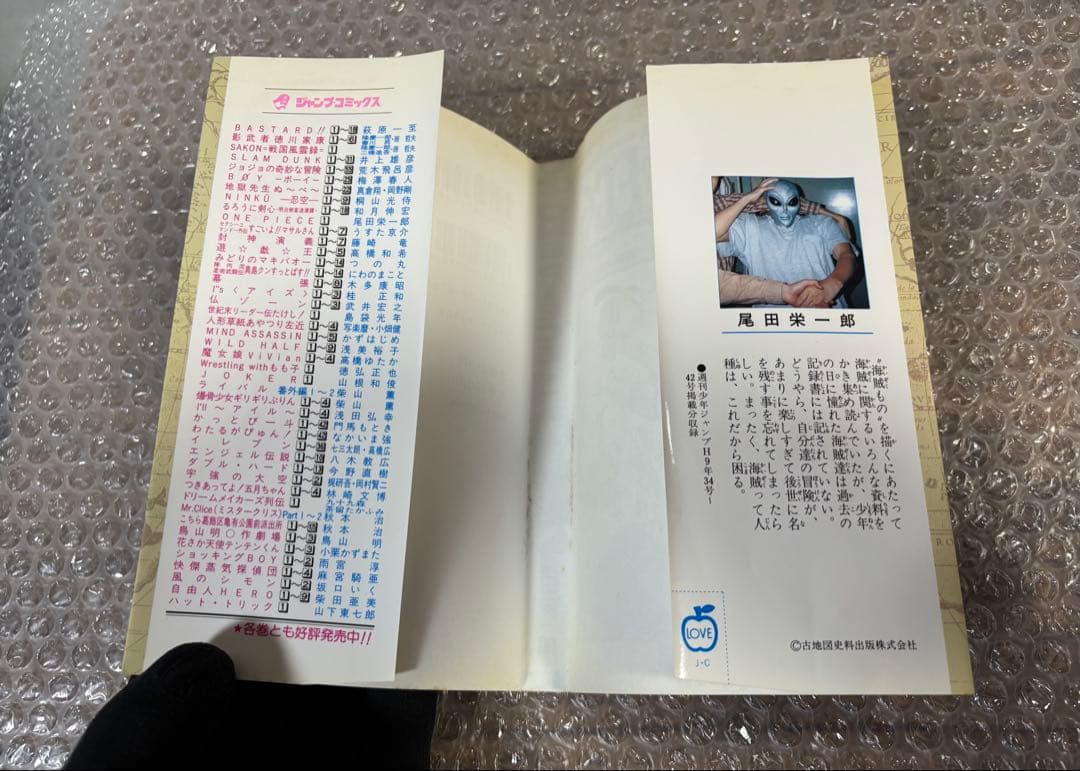 ジャンプ・コミックス
BASTARD!! 萩原一至
影武者徳川家康
SAKON=戦国風雲録=
SLAM DUNK 井上雄彦
ジョジョの奇妙な冒険 荒木飛呂彦
BØY ―ボーイ― 梅澤春人
地獄先生ぬ〜べ〜 真倉翔・岡野剛
NINKŪ ―忍空― 桐山光侍
るろうに剣心 和月伸宏
ONE PIECE 1 尾田栄一郎
すごいよ!!マサルさん うすた京介
封神演義 藤崎竜
遊☆戯☆王 高橋和希
みどりのマキバオー つの丸
真島クンすっとばす!! にわのまこと
幕張 木多康昭
I"s〈アイズ〉 桂正和
仏ゾーン 武井宏之
世紀末リーダー伝たけし! 島袋光年
人形草紙あやつり左近 写楽麿・小畑健
MIND ASSASSIN かずはじめ
WILD HALF 浅美裕子
魔女娘ViVian 高橋ゆたか
Wrestling with もも子 徳弘正也
JOKER 山根和俊
ライバル 番外編1〜2 柴山薫
爆骨少女ギリギリぷりん 柴山薫
I'll 〜アイル〜 浅田弘幸
かっとび一斗 門馬もとき
わたるがぴゅん! なかいま強
イレブン 七三太朗・高橋広
エンジェル伝説 八木教広
ダブル・ハード 今野直樹
宇強の大空 梶研吾・岡村賢二
つきあってよ!五月ちゃん 林崎文博
ドリームメイカーズ列伝
Mr.Clice(ミスタークリス) Part1〜2 秋本治
こちら葛飾区亀有公園前派出所 秋本治
鳥山明○作劇場 鳥山明
花さか天使テンテンくん 小栗かずまた
ショッキングBOY 雨宮淳
快傑蒸気探偵団 麻宮騎亜
風のシモン 坂口いく
自由人HERO 柴田亜美
ハット・トリック 山下東七郎
★各巻とも好評発売中!!
尾田栄一郎
“海賊もの”を描くにあたって
海賊に関するいろんな資料を
かき集め読んでいたが、少年
の日に憧れた海賊達は過去の
記録書には記されていない。
どうやら、自分達の冒険が、
あまりに楽しすぎて後世に名
を残す事を忘れてしまったら
しい。まったく、海賊って人
種は、これだから困る。
●週刊少年ジャンプH9年34号〜
42号掲載分収録
LOVE
J・C
©古地図史料出版株式会社